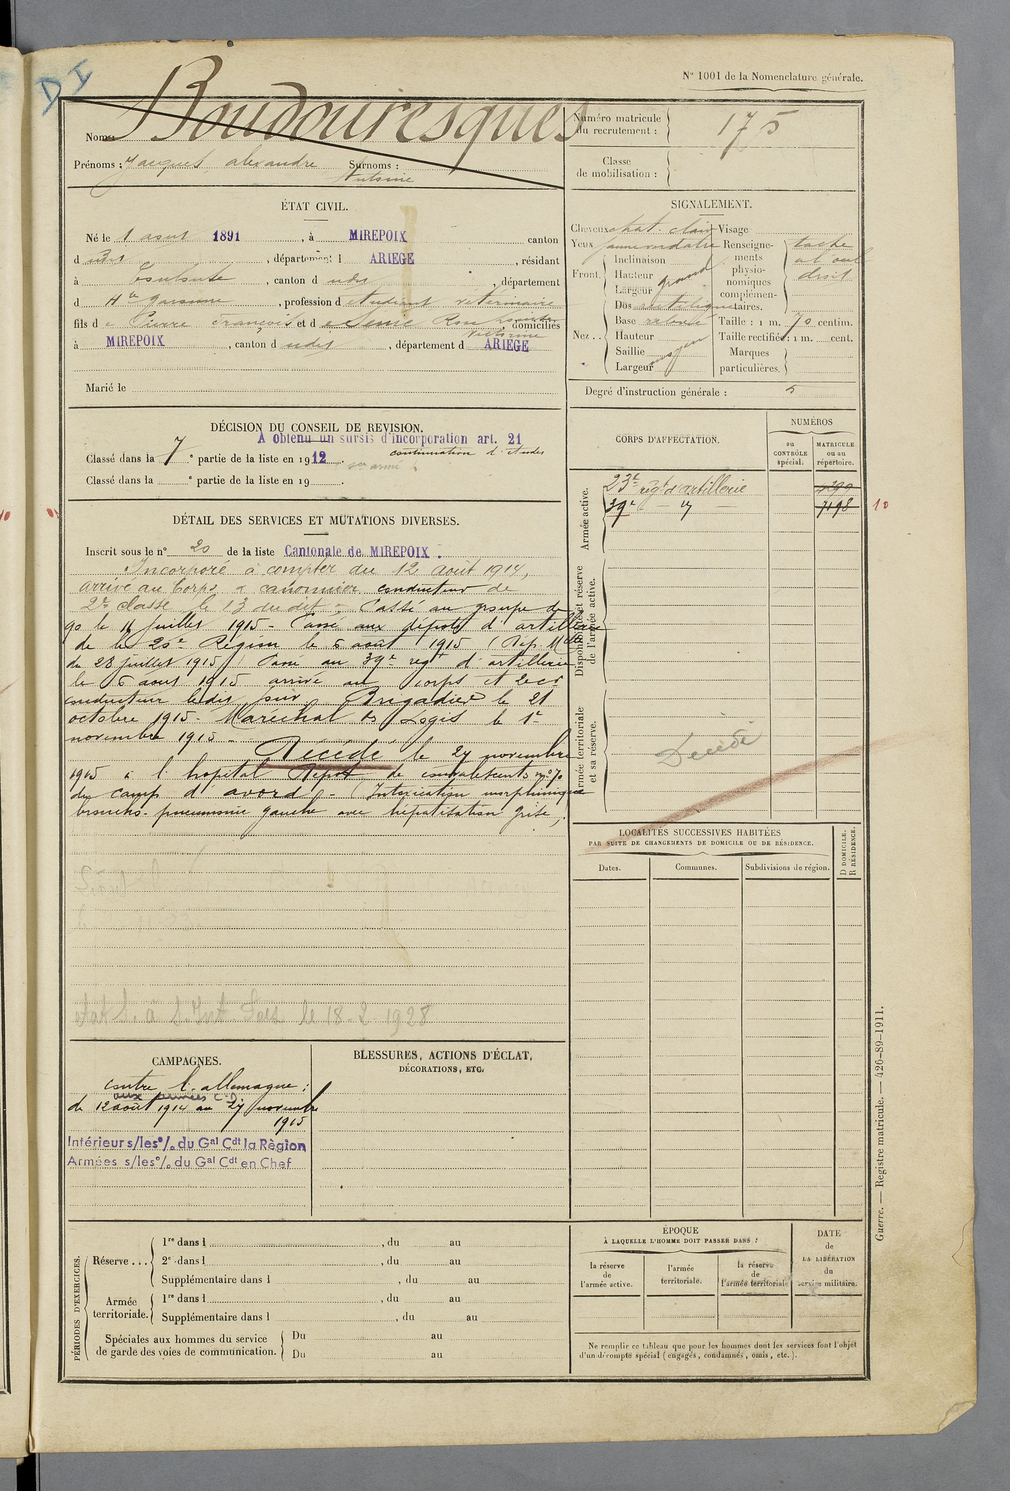 N° 1001 de la Nomenclature générale.
D I
Nom: Boudouresques
Prénoms : Jacques, alexandre Surnoms :
Antonin
Numéro matricule du recrutement : 175
Classe de mobilisation :
ÉTAT CIVIL.
Né le 1 aout 1891, à MIREPOIX canton
d udit, département d ARIEGE, résidant
à Toulouse, canton d udit, département
d Hte garonne, profession d étudiant vétérinaire
fils d e Pierre François et d e domiciliés
à MIREPOIX, canton d udit, département d ARIEGE
Marié le
SIGNALEMENT.
Cheveux chat. clair Visage
Yeux jaune verdatre Renseignements physionomiques complémentaires. tache at oeil droit
Front. Inclinaison
Hauteur grand
Largeur
Nez.. Dos rectiligne
Base
Hauteur moyen
Saillie
Largeur
Taille : 1 m. 70 centim.
Taille rectifiée : 1 m. cent.
Marques particulières.
Degré d'instruction générale : 5
DÉCISION DU CONSEIL DE REVISION.
A obtenu un sursis d'incorporation art. 21
continuation d'études
Classé dans la 7e partie de la liste en 1912
Classé dans la e partie de la liste en 19
CORPS D'AFFECTATION.
NUMÉROS
au CONTRÔLE spécial.
MATRICULE ou au répertoire.
Armée active.
23e régt d'artillerie
39e — " — 7198
10
Disponibilité et réserve de l'armée active.
Armée territoriale et sa réserve.
Décédé
DÉTAIL DES SERVICES ET MUTATIONS DIVERSES.
Inscrit sous le n° 20 de la liste Cantonale de MIREPOIX.
Incorporé à compter du 12 août 1914,
arrivé au Corps & canonnier conducteur de
2e classe le 13 du dit. Passé au groupe de
90 le 16 juillet 1915 - Passé aux dépots d'artillerie
de la 20e Région le 6 août 1915 (Dép. Mlle
du 28 juillet 1915) Passé au 39e régt d'artillerie
le 6 aout 1915 arrivé au corps et 2e cr
conducteur ledit jour Brigadier le 21
octobre 1915. Maréchal des Logis le 1er
novembre 1915 -
Décédé le 27 novembre
1915 à l'hopital Dépot de convalescents n° 70
du camp d'avord - (Intoxication morphinique
broncho-pneumonie gauche avec hépatisation grise).
le 18. 2 1928
LOCALITÉS SUCCESSIVES HABITÉES
PAR SUITE DE CHANGEMENTS DE DOMICILE OU DE RÉSIDENCE.
Dates.
Communes.
Subdivisions de région.
D DOMICILE. R RÉSIDENCE.
CAMPAGNES.
contre l'allemagne :
aux armées C.D.
du 12 août 1914 au 27 novembre
1915
Intérieur s/les % du Gal Cdt la Règion
Armées s/les % du Gal Cdt en Chef
BLESSURES, ACTIONS D'ÉCLAT,
DÉCORATIONS, ETC.
PÉRIODES D'EXERCICES.
Réserve ... 1re dans l , du au
2e dans l , du au
Supplémentaire dans l , du au
Armée territoriale. 1re dans l , du au
Supplémentaire dans l , du au
Spéciales aux hommes du service de garde des voies de communication. Du au
Du au
ÉPOQUE
À LAQUELLE L'HOMME DOIT PASSER DANS :
la réserve de l'armée active.
l'armée territoriale.
la réserve de l'armée territoriale
DATE de LA LIBÉRATION du service militaire.
Ne remplir ce tableau que pour les hommes dont les services font l'objet
d'un décompte spécial (engagés, condamnés, omis, etc.).
Guerre. — Registre matricule. — 426-89-1911.